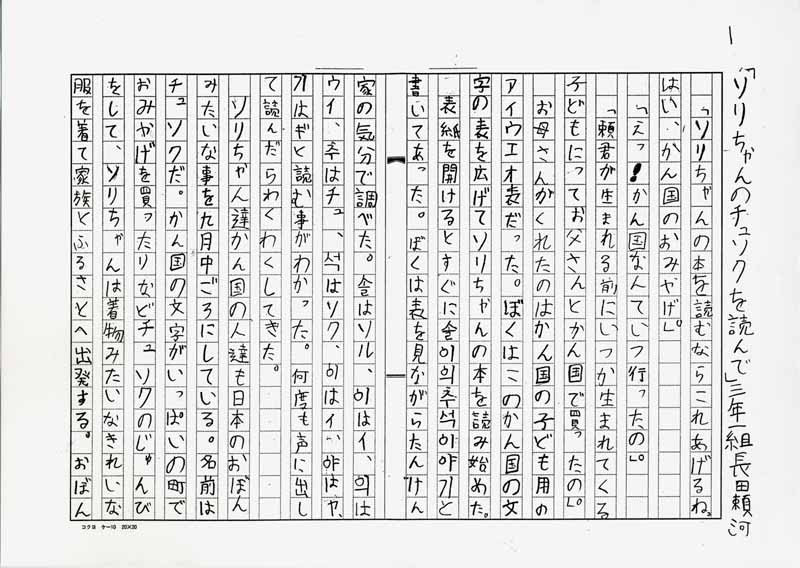 1
「ソリちゃんのチュソクを読んで」三年一組長田頼河
「ソリちゃんの本を読むならこれあげるね。
はい、かん国のおみやげ」。
「えっ！かん国なんていつ行ったの」。
「頼君が生まれる前にいつか生まれてくる
子どもにってお父さんとかん国で買ったの」。
お母さんがくれたのはかん国の子ども用の
アイウエオ表だった。ぼくはこのかん国の文
字の表を広げてソリちゃんの本を読み始めた。
表紙を開けるとすぐに솔이의추석이야기と
書いてあった。ぼくは表を見ながらたんけん
家の気分で調べた。솔はソル、이はイ、의は
ウイ、추はチュ、석はソク、이はイ、야はヤ、
기はギと読む事がわかった。何度も声に出し
て読んだらわくわくしてきた。
ソリちゃん達かん国の人達も日本のおぼん
みたいな事を九月中ごろにしている。名前は
チュソクだ。かん国の文字がいっぱいの町で
おみやげを買ったりなどチュソクのじゅんび
をして、ソリちゃんは着物みたいなきれいな
服を着て家族とふるさとへ出発する。おぼん
コクヨ ケー10 20×20